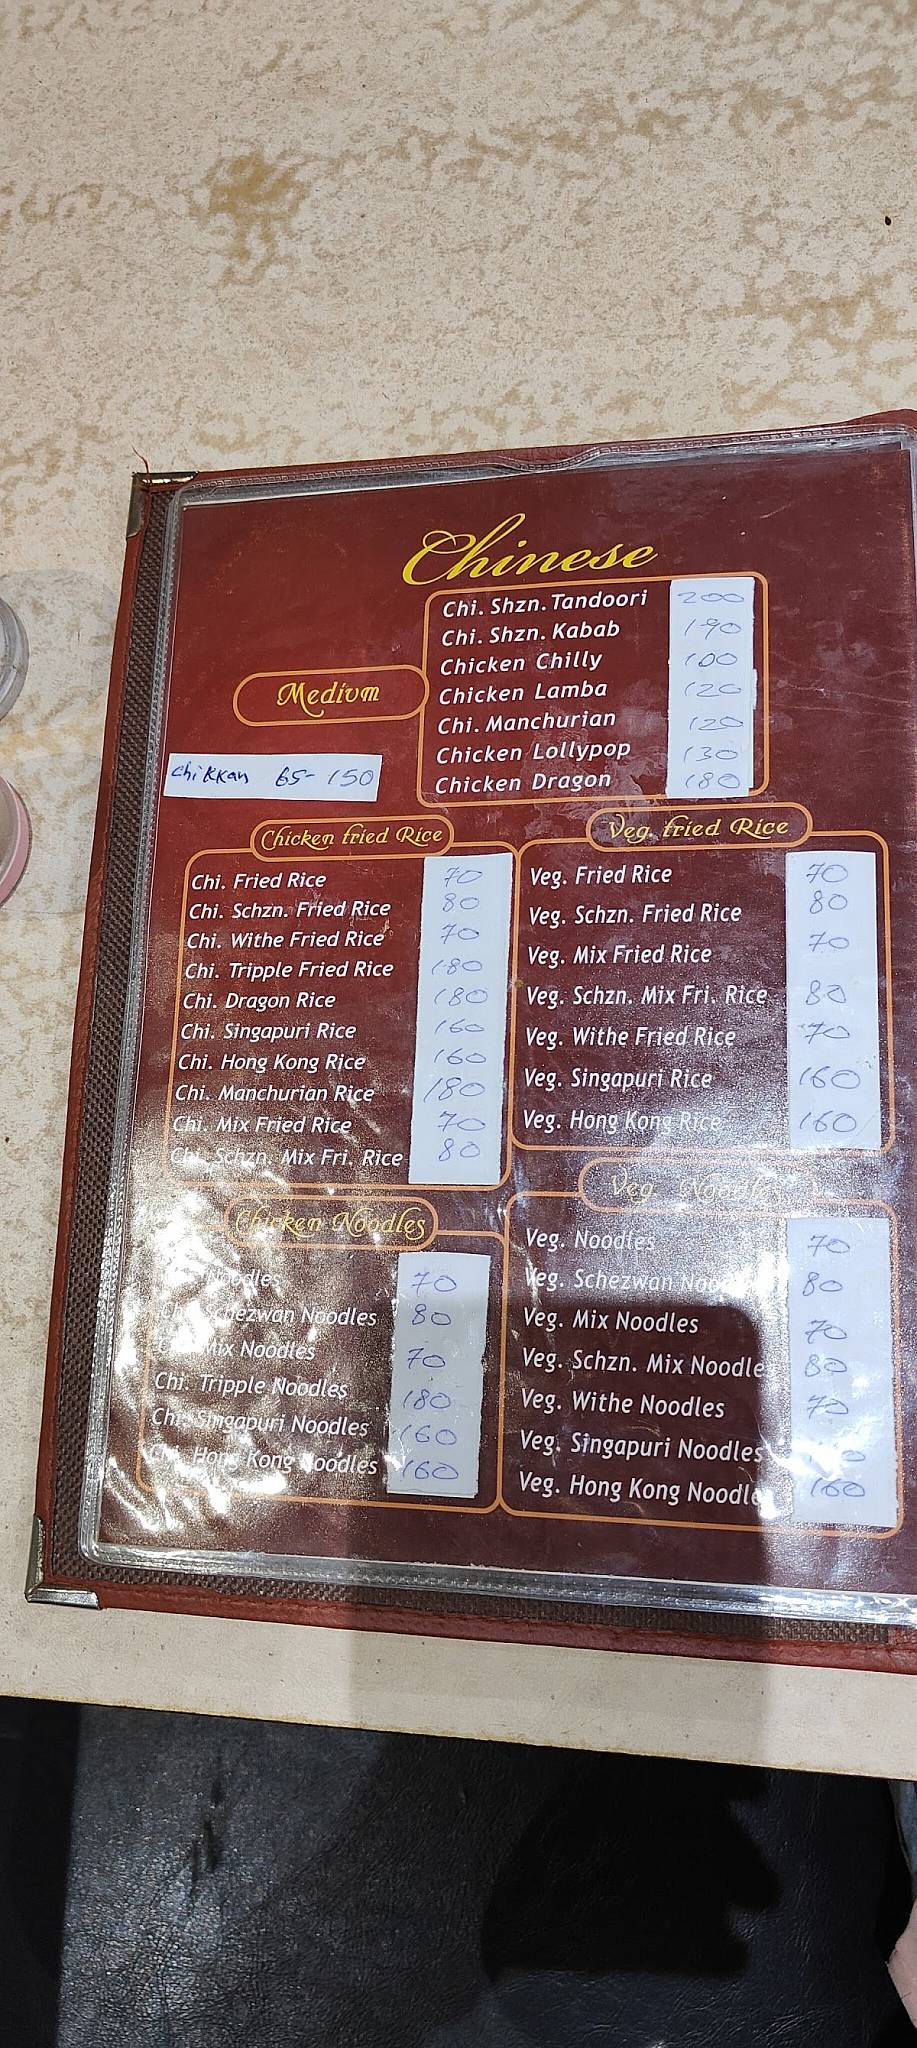 Chinese
Medium
Chi. Shzn. Tandoori 200
Chi. Shzn. Kabab 190
Chicken Chilly 100
Chicken Lamba 120
Chi. Manchurian 120
Chicken Lollypop 130
Chicken Dragon 180
Chikkan 65-150
Chicken fried Rice
Chi. Fried Rice 70
Chi. Schzn. Fried Rice 80
Chi. Withe Fried Rice 70
Chi. Tripple Fried Rice 180
Chi. Dragon Rice 180
Chi. Singapuri Rice 160
Chi. Hong Kong Rice 160
Chi. Manchurian Rice 180
Chi. Mix Fried Rice 70
Chi. Schzn. Mix Fri. Rice 80
Veg. fried Rice
Veg. Fried Rice 70
Veg. Schzn. Fried Rice 80
Veg. Mix Fried Rice 70
Veg. Schzn. Mix Fri. Rice 80
Veg. Withe Fried Rice 70
Veg. Singapuri Rice 160
Veg. Hong Kong Rice 160
Chicken Noodles
Noodles 70
Schezwan Noodles 80
Mix Noodles 70
Chi. Tripple Noodles 180
Chi. Singapuri Noodles 160
Chi. Hong Kong Noodles 160
Veg. Noodles
Veg. Noodles 70
Veg. Schezwan Noodles 80
Veg. Mix Noodles 70
Veg. Schzn. Mix Noodle 80
Veg. Withe Noodles 70
Veg. Singapuri Noodles
Veg. Hong Kong Noodle 160